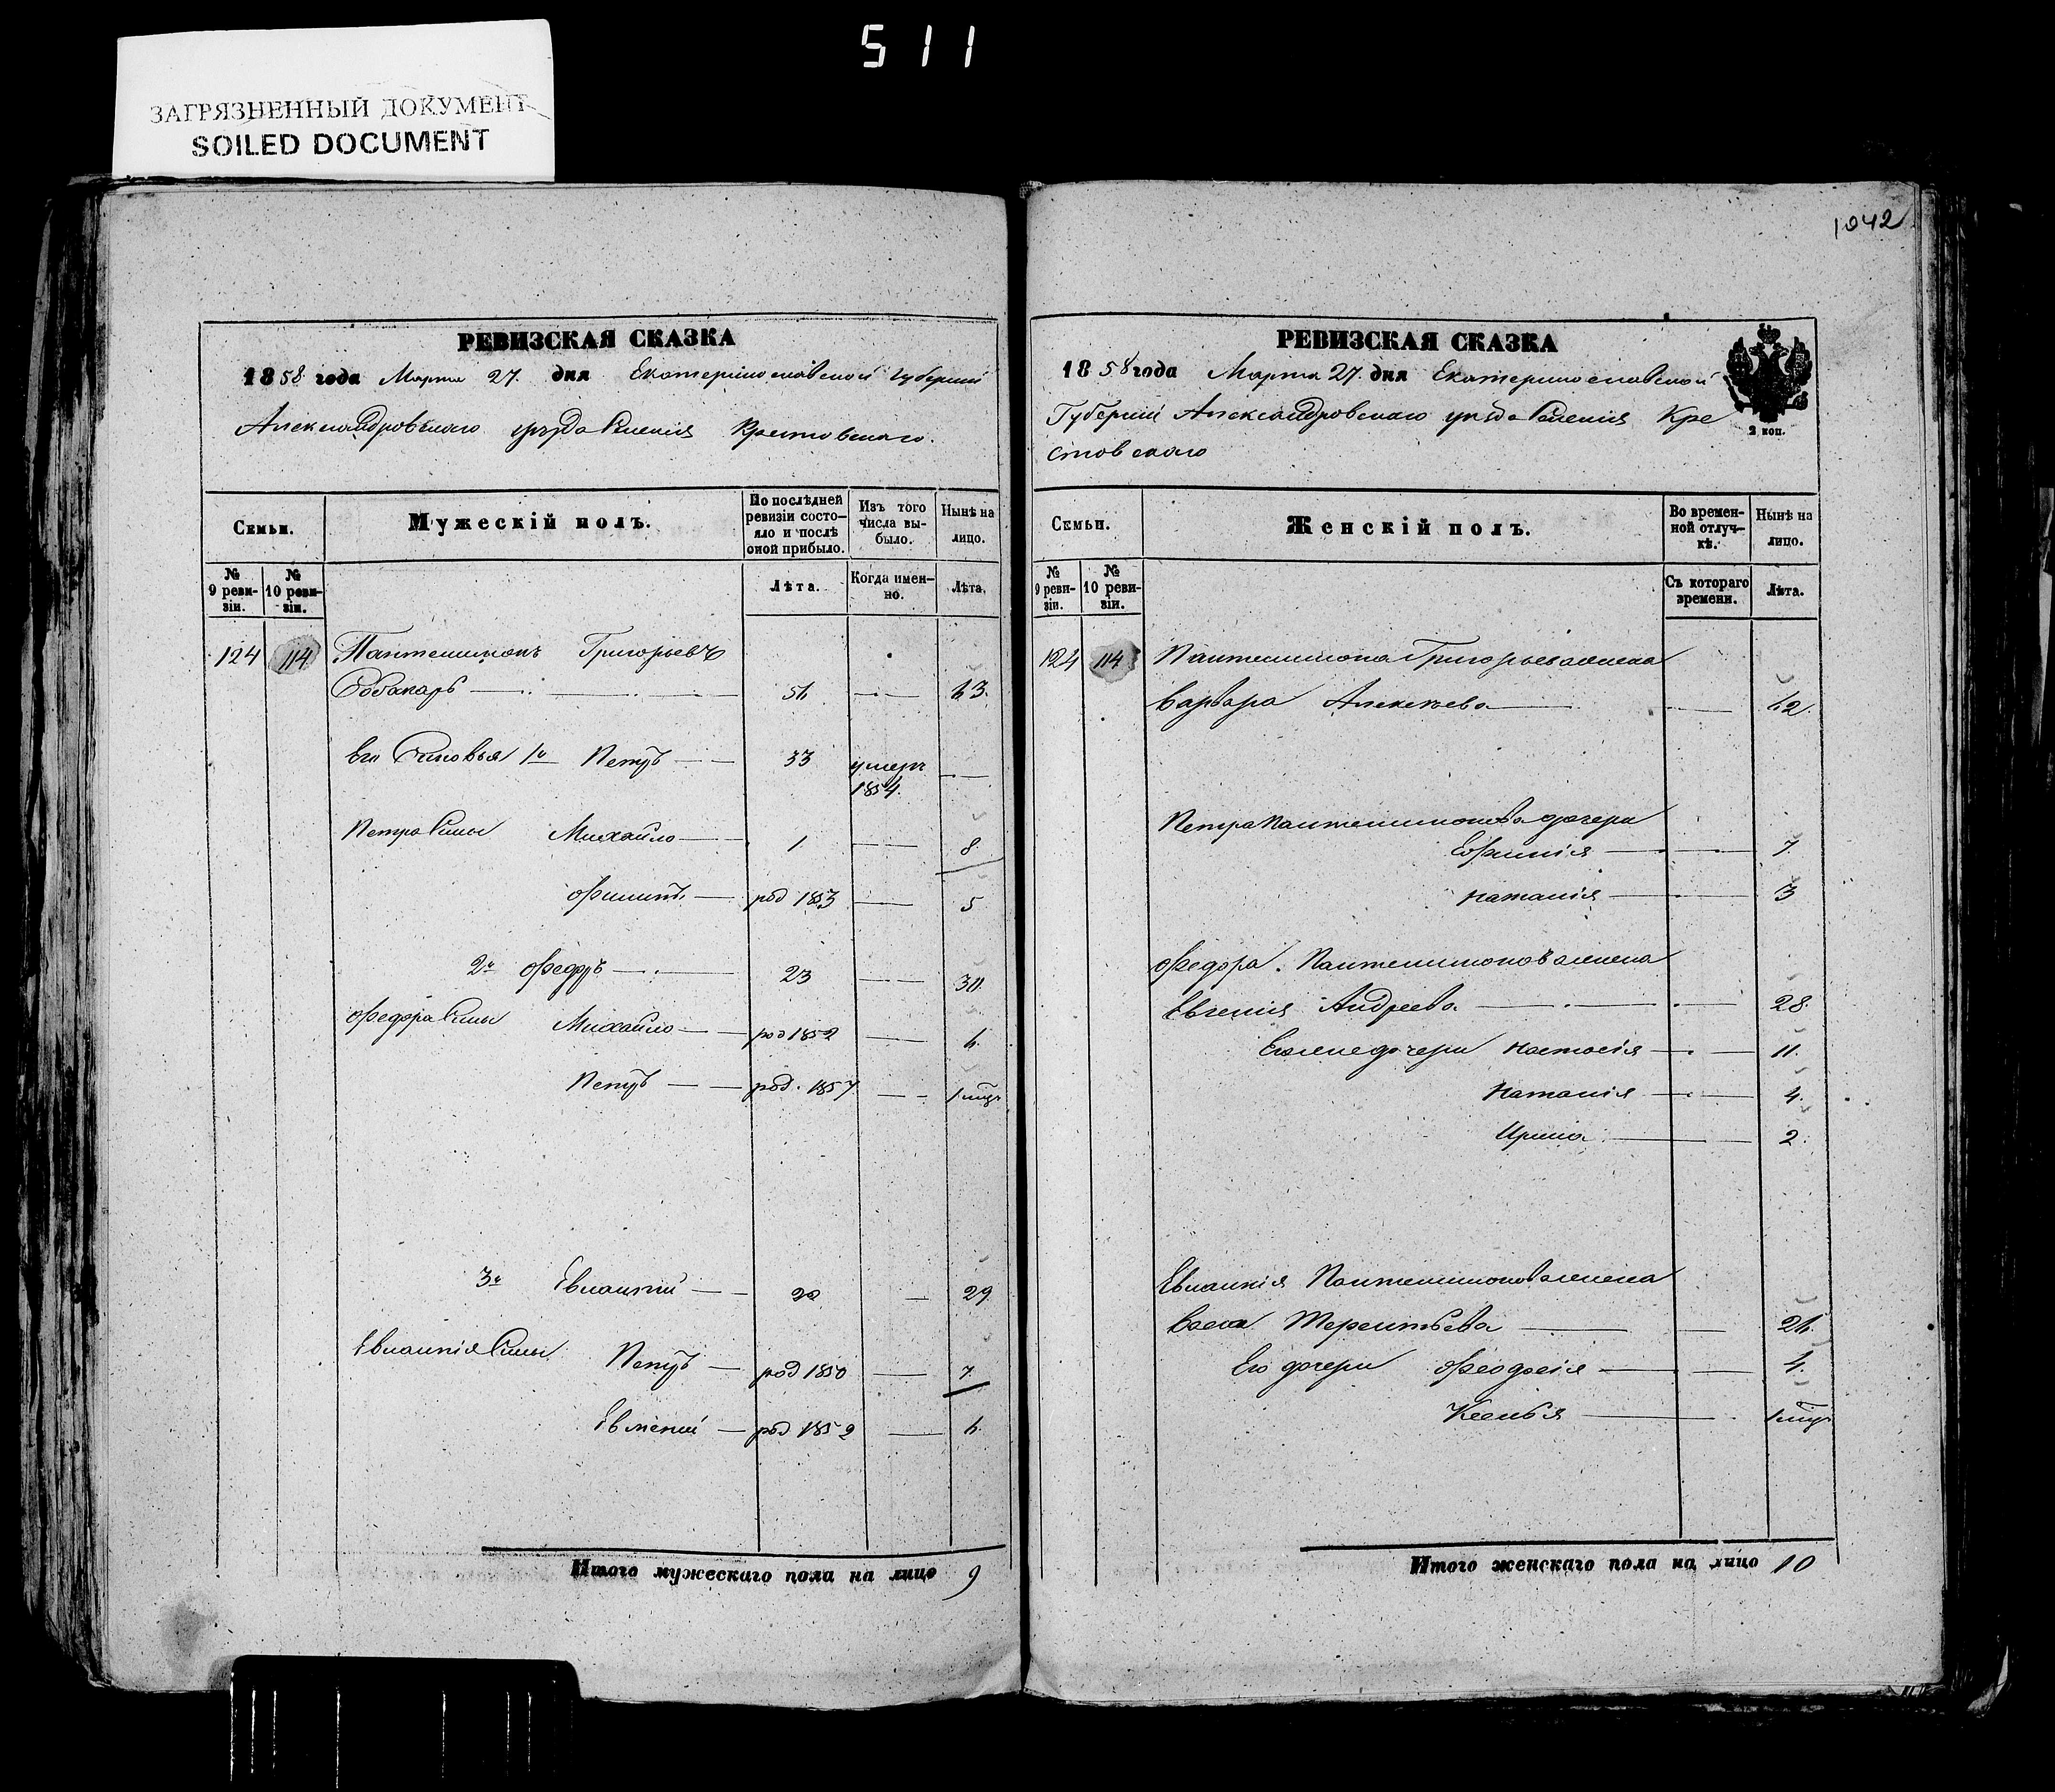 511
ЗАГРЯЗНЕННЫЙ ДОКУМЕНТ
SOILED DOCUMENT
РЕВИЗСКАЯ СКАЗКА
1858 года Марта 27. дня Екатеринославской губерніи
Александровскаго уѣзда Селенія Крестовскаго.
Семьи.
Мужескій полъ.
По послѣдней ревизіи состо-
яло и послѣ
оной прибыло.
Изъ того
числа вы-
было.
Нынѣ на
лицо.
№
9 реви-
зіи.
№
10 реви-
зіи.
Лѣта.
Когда имен-
но.
Лѣта.
124 114 Пантелимонъ Григорьевъ
51 63.
Его Сыновья 1й Петръ 33 умеръ
1854.
Петра Сыны Михайло 1 8
Филипъ род 1853 5
2й Федоръ 23 30.
Федора Сыны Михайло род 1852 6.
Петръ род. 1857
3й Евлампий 29
Евлампія Сыны Петръ род 1850 7.
род 1852 6.
Итого мужескаго пола на лицо 9
1042
РЕВИЗСКАЯ СКАЗКА
1858 года Марта 27. дня Екатеринославской
Губерніи Александровскаго уѣзда Селенія Кре
стовскаго
2 коп.
Семьи.
Женскій полъ.
Во времен-
ной отлуч-
кѣ.
Нынѣ на
лицо.
№
9 реви-
зіи.
№
10 реви-
зіи.
Съ котораго
времени.
Лѣта.
124 114 Пантелимона Григорьева жена
Варвара Алексѣева 62.
Петра Пантелимонова дочери
Ефимія 7.
Наталія 3
Федора Пантелимонова жена
Евгенія Андреева 28.
дочери Настасія 11.
Наталія 4.
Ирина 2.
Евлампія Пантелимонова жена
Терентьева 26.
Его дочери Феодосія 4.
Ксенья
Итого женскаго пола на лицо 10